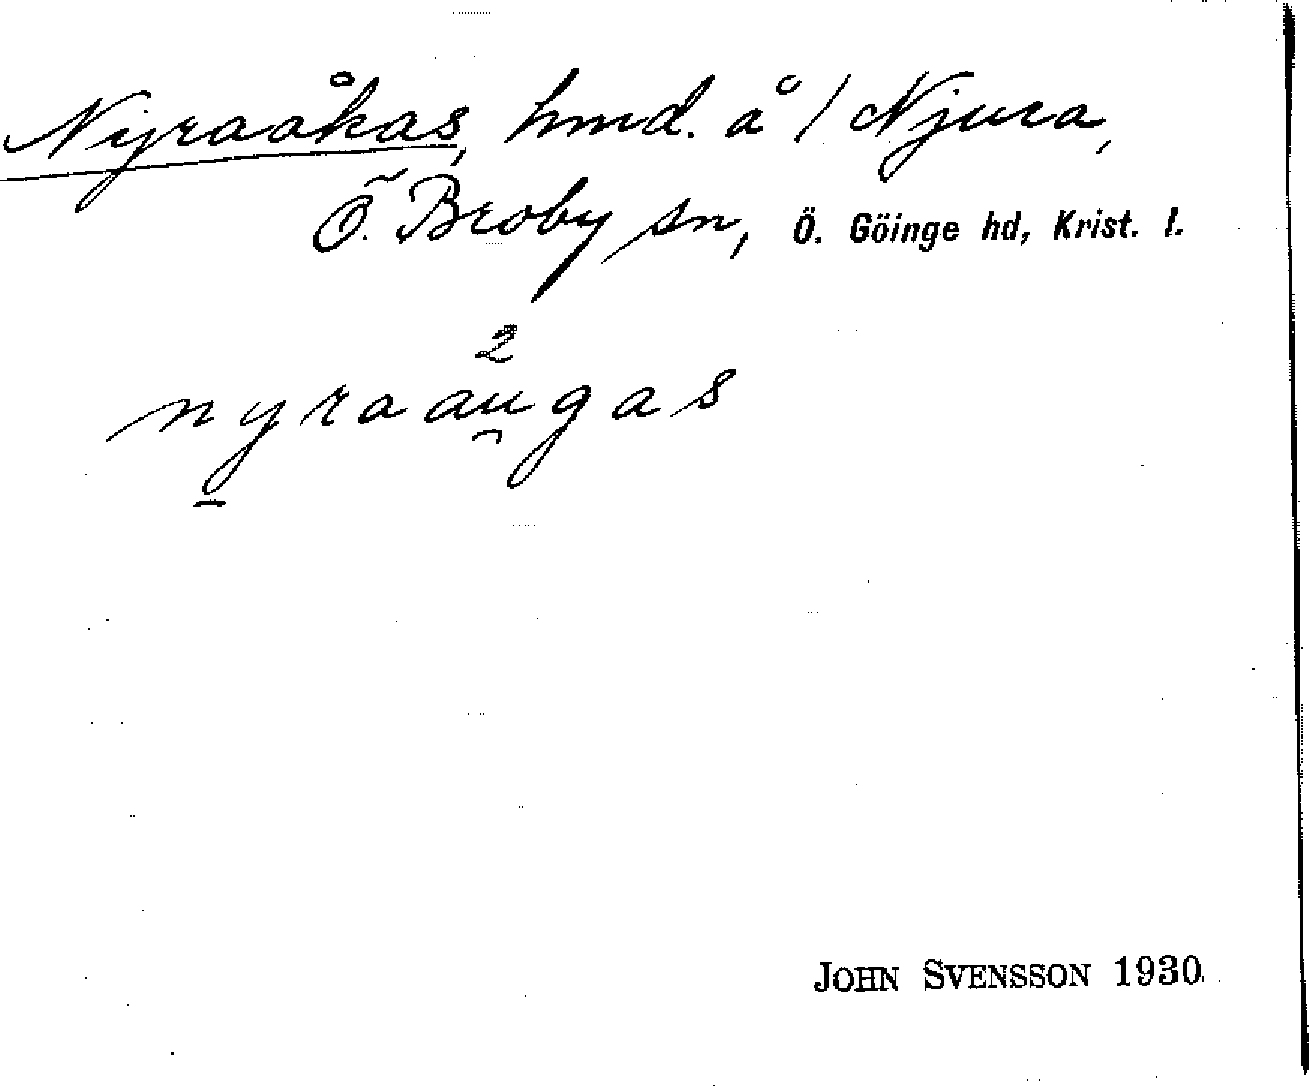 Nyraåkas, hmd. å / Njura,
Ö. Broby sn, Ö. Göinge hd, Krist. l.
2
nyraau̯gas
JOHN SVENSSON 1930